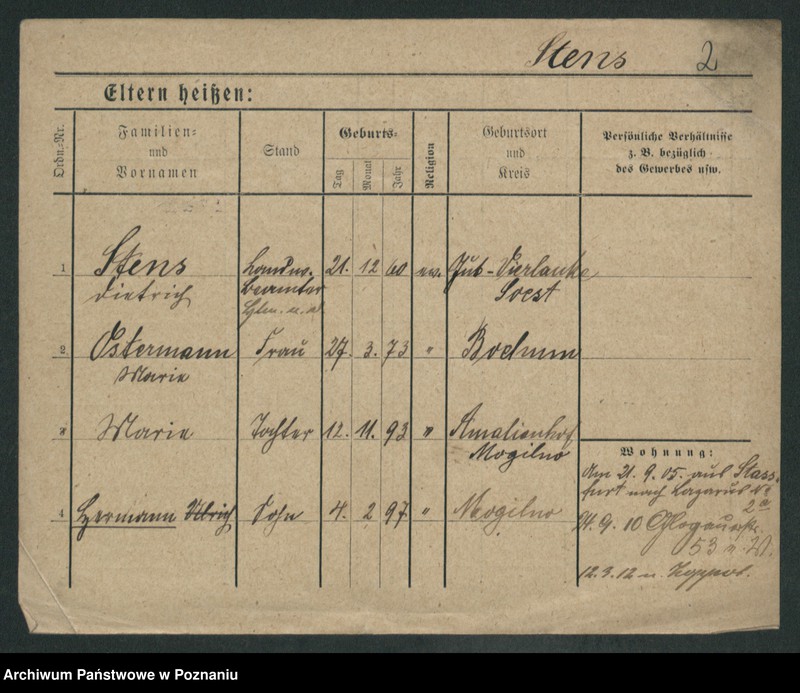 Stens 2
Eltern heißen:
Ordn.-Nr.
Familien-
und
Vornamen
Stand
Geburts-
Tag
Monat
Jahr
Religion
Geburtsort
und
Kreis
Persönliche Verhältnisse
z. B. bezüglich
des Gewerbes usw.
1 Stens Landw. 21. 12 60 ev.
Dietrich Beamter Soest
2 Ostermann Frau 27. 3. 73 "
Marie
" Marie Tochter 12. 11. 93 " Amalienhof
Mogilno
4 Hermann Ulrich Sohn 4. 2 97 " Mogilno
Wohnung:
Am 21. 9. 05. aus Stass-
furt nach Lazarus
24. 9. 10 Glogauerstr.
53
12. 3. 12 n.
Archiwum Państwowe w Poznaniu